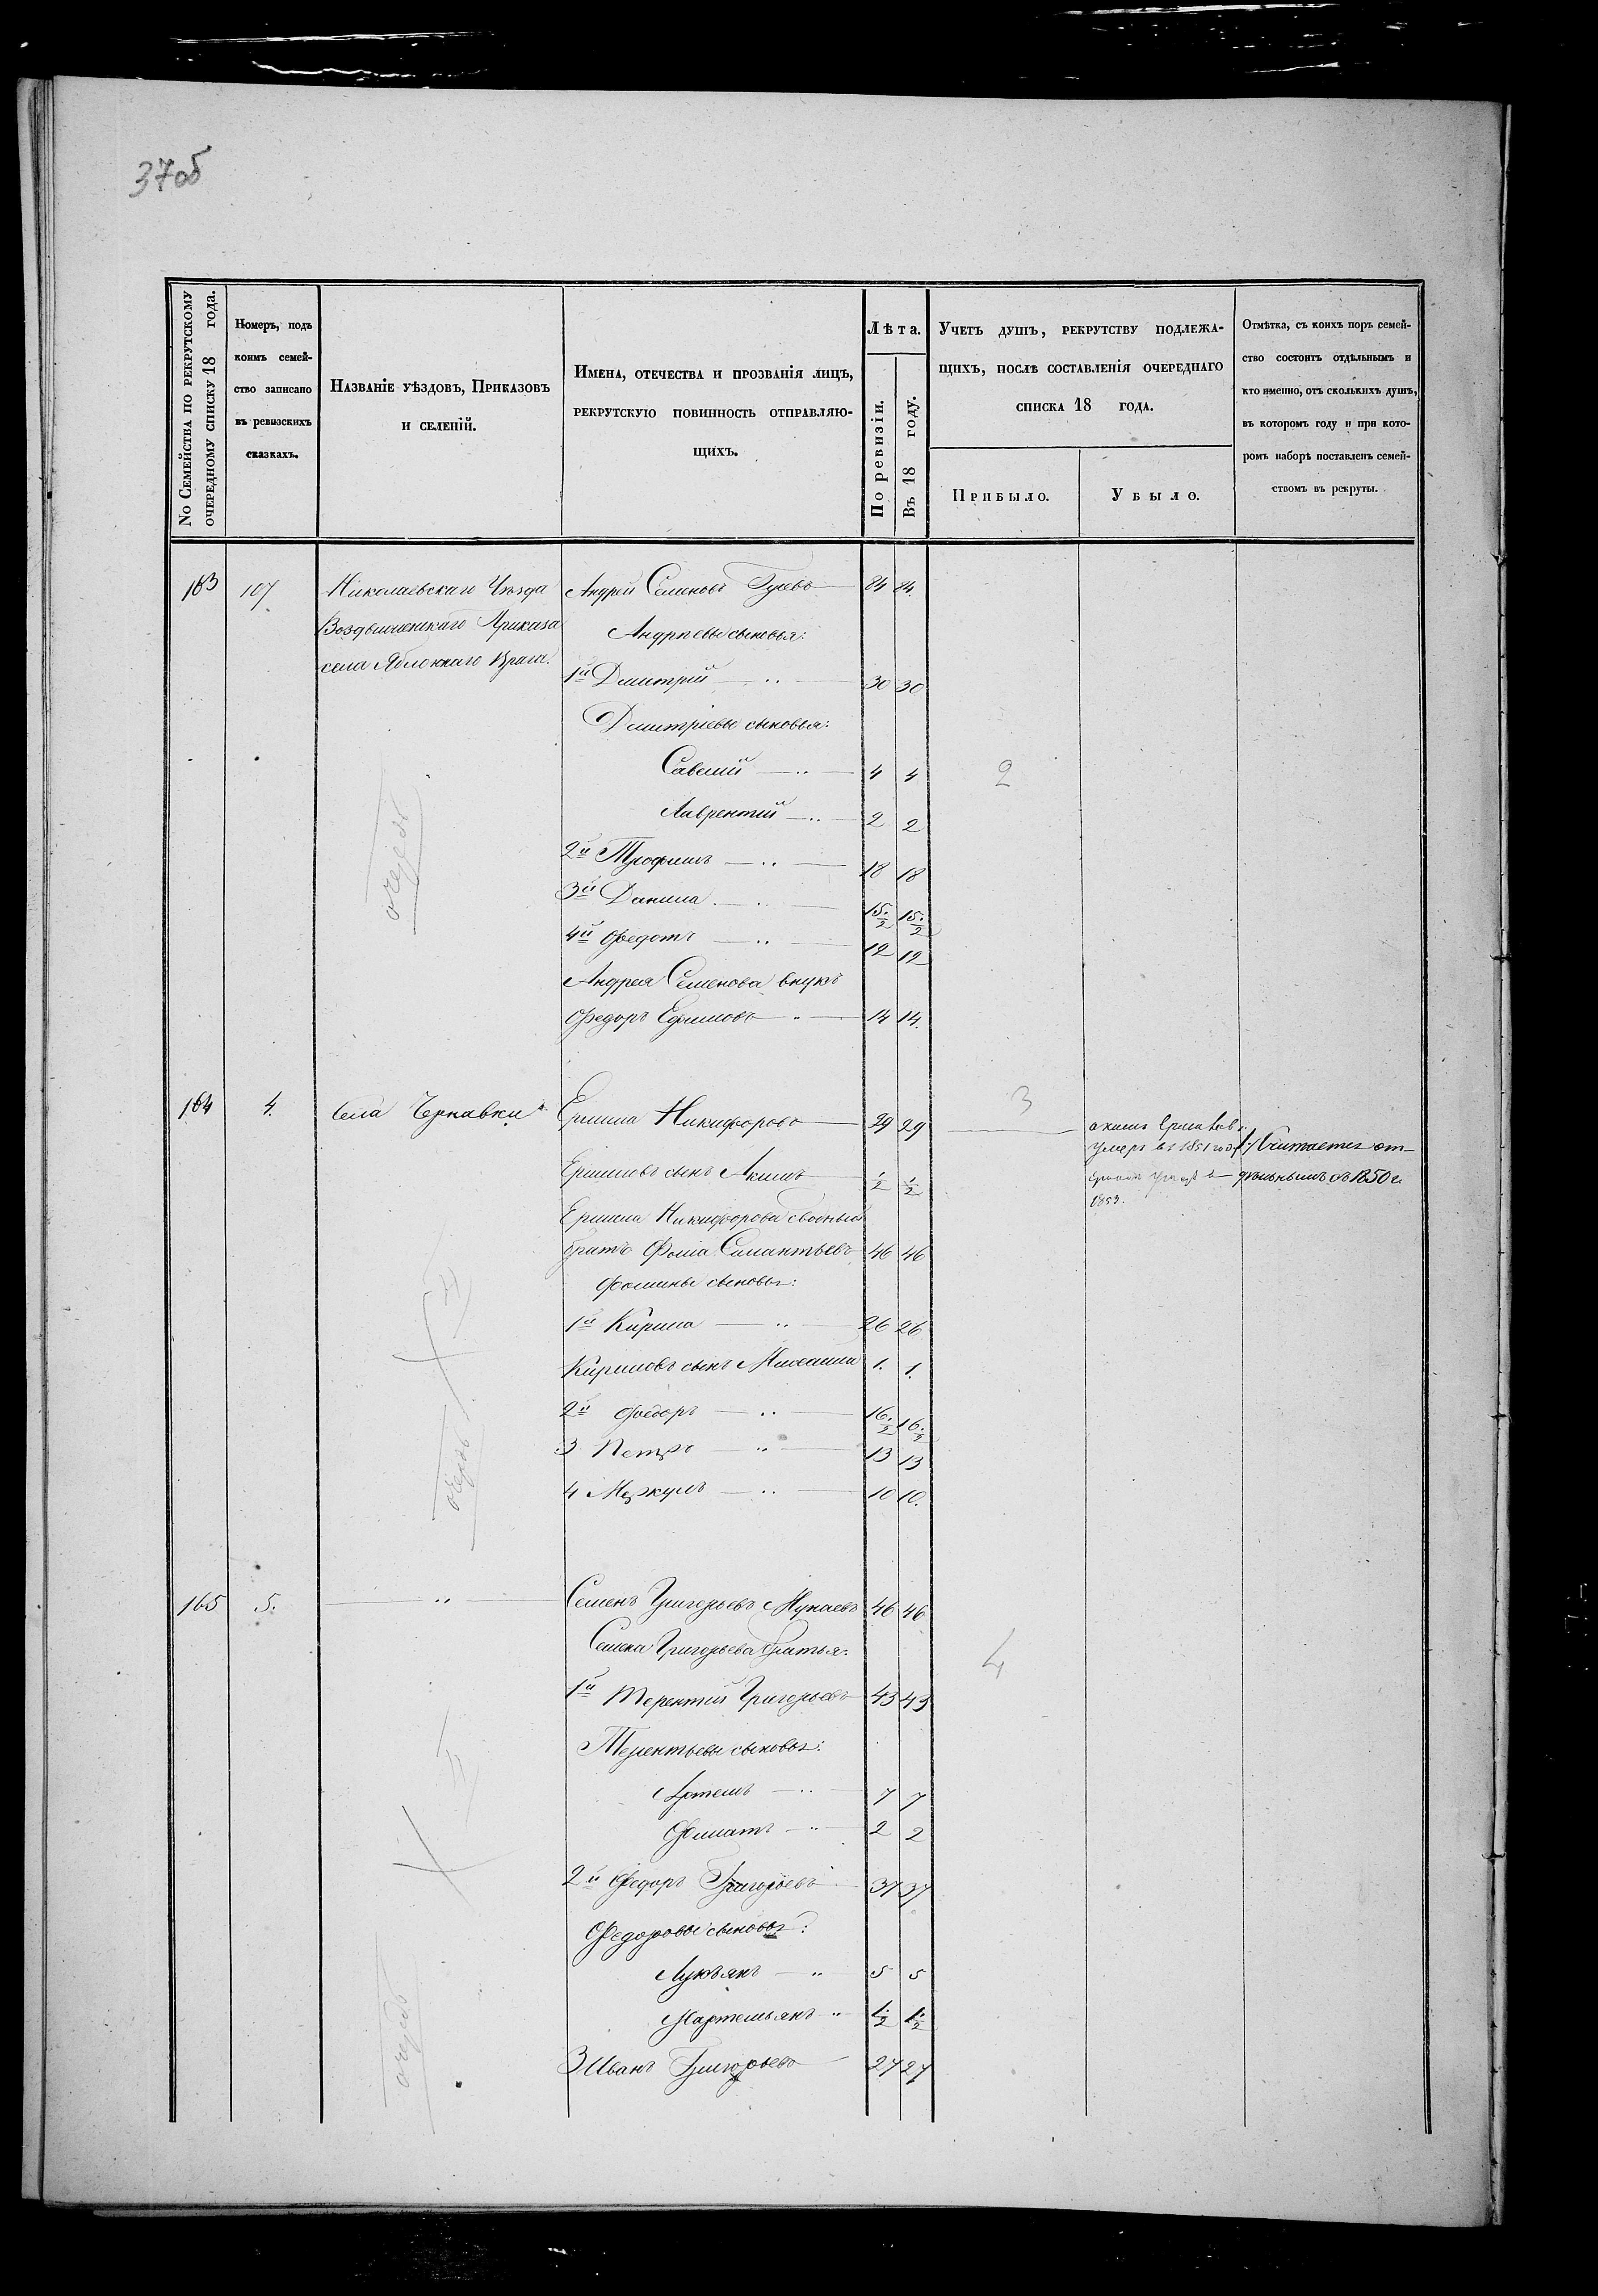 37об
№ Семейства по рекрутскому
очередному списку 18 года.
Номеръ, подъ
коимъ семей-
ство записано
въ ревизскихъ
сказкахъ.
Названіе уѣздовъ, Приказовъ
и селеній.
Имена, отечества и прозванія лицъ,
рекрутскую повинность отправляю-
щихъ.
Лѣта.
По ревизіи.
Въ 18 году.
Учетъ душъ, рекрутству подлежа-
щихъ, послѣ составленія очереднаго
списка 18 года.
Прибыло.
Убыло.
Отмѣтка, съ коихъ поръ семей-
ство состоитъ отдѣльнымъ и
кто именно, отъ сколькихъ душъ,
въ которомъ году и при кото-
ромъ наборѣ поставленъ семей-
ствомъ въ рекруты.
163 107 Николаевскаго Уѣзда Андрей Семеновъ Гуевъ 84 84.
Воздвиженскаго Приказа Андрѣевы сыновья:
села Яблоннаго Врага. 1й Дмитрій — „ — 30 30
Дмитріевы сыновья:
Савелий — „ — 4 4
2
Лаврентий — „ 2 2
очередь
2й Трофимъ — „ — 18 18
3й Данила — „ — 15.½ 15.½
4й Федотъ — „ — 12 12
Андрея Семенова внукъ
Федоръ Ефимовъ — „ — 14 14.
164 4. Села Чернавки Ермила Никифоровъ 29 29
3
Ермиловъ сынъ Акимъ ½ ½
умеръ въ 1851 году
1853.
Считается от-
дѣльнымъ съ 1850 г.
Ермила Никифорова сводный
братъ Фома Силантьевъ 46 46
Фомины сыновья:
1й Кирила — „ — 26 26
Кириловъ сынъ Михаила 1. 1.
2й Федоръ — „ — 16.½ 16.½
3 Петръ — „ — 13 13
4 Меркулъ — „ — 10 10.
очередь
165 5. — „ — Семенъ Григорьевъ Мунаевъ 46 46
Семена Григорьева братья:
4
1й Терентий Григорьевъ 43 43
Терентьевы сыновья:
Артемъ — „ 7 7
Филатъ — „ 2 2
2й Федоръ Григорьевъ 37 37
Федоровы сыновья:
Лукьянъ — „ 5 5
Мартемьянъ „ 1.½ 1.½
3 Иванъ Григорьевъ — 27 27
очередь